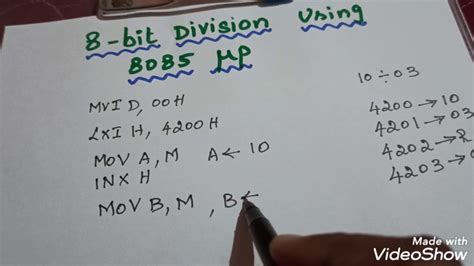 8-bit Division Using
8085 μp
MVI D, 00H
LXI H, 4200H
MOV A, M A ← 10
INX H
MOV B, M , B ←
10 ÷ 03
4200 → 10
4201 → 03
4202 →
4203 →
Made with
VideoShow